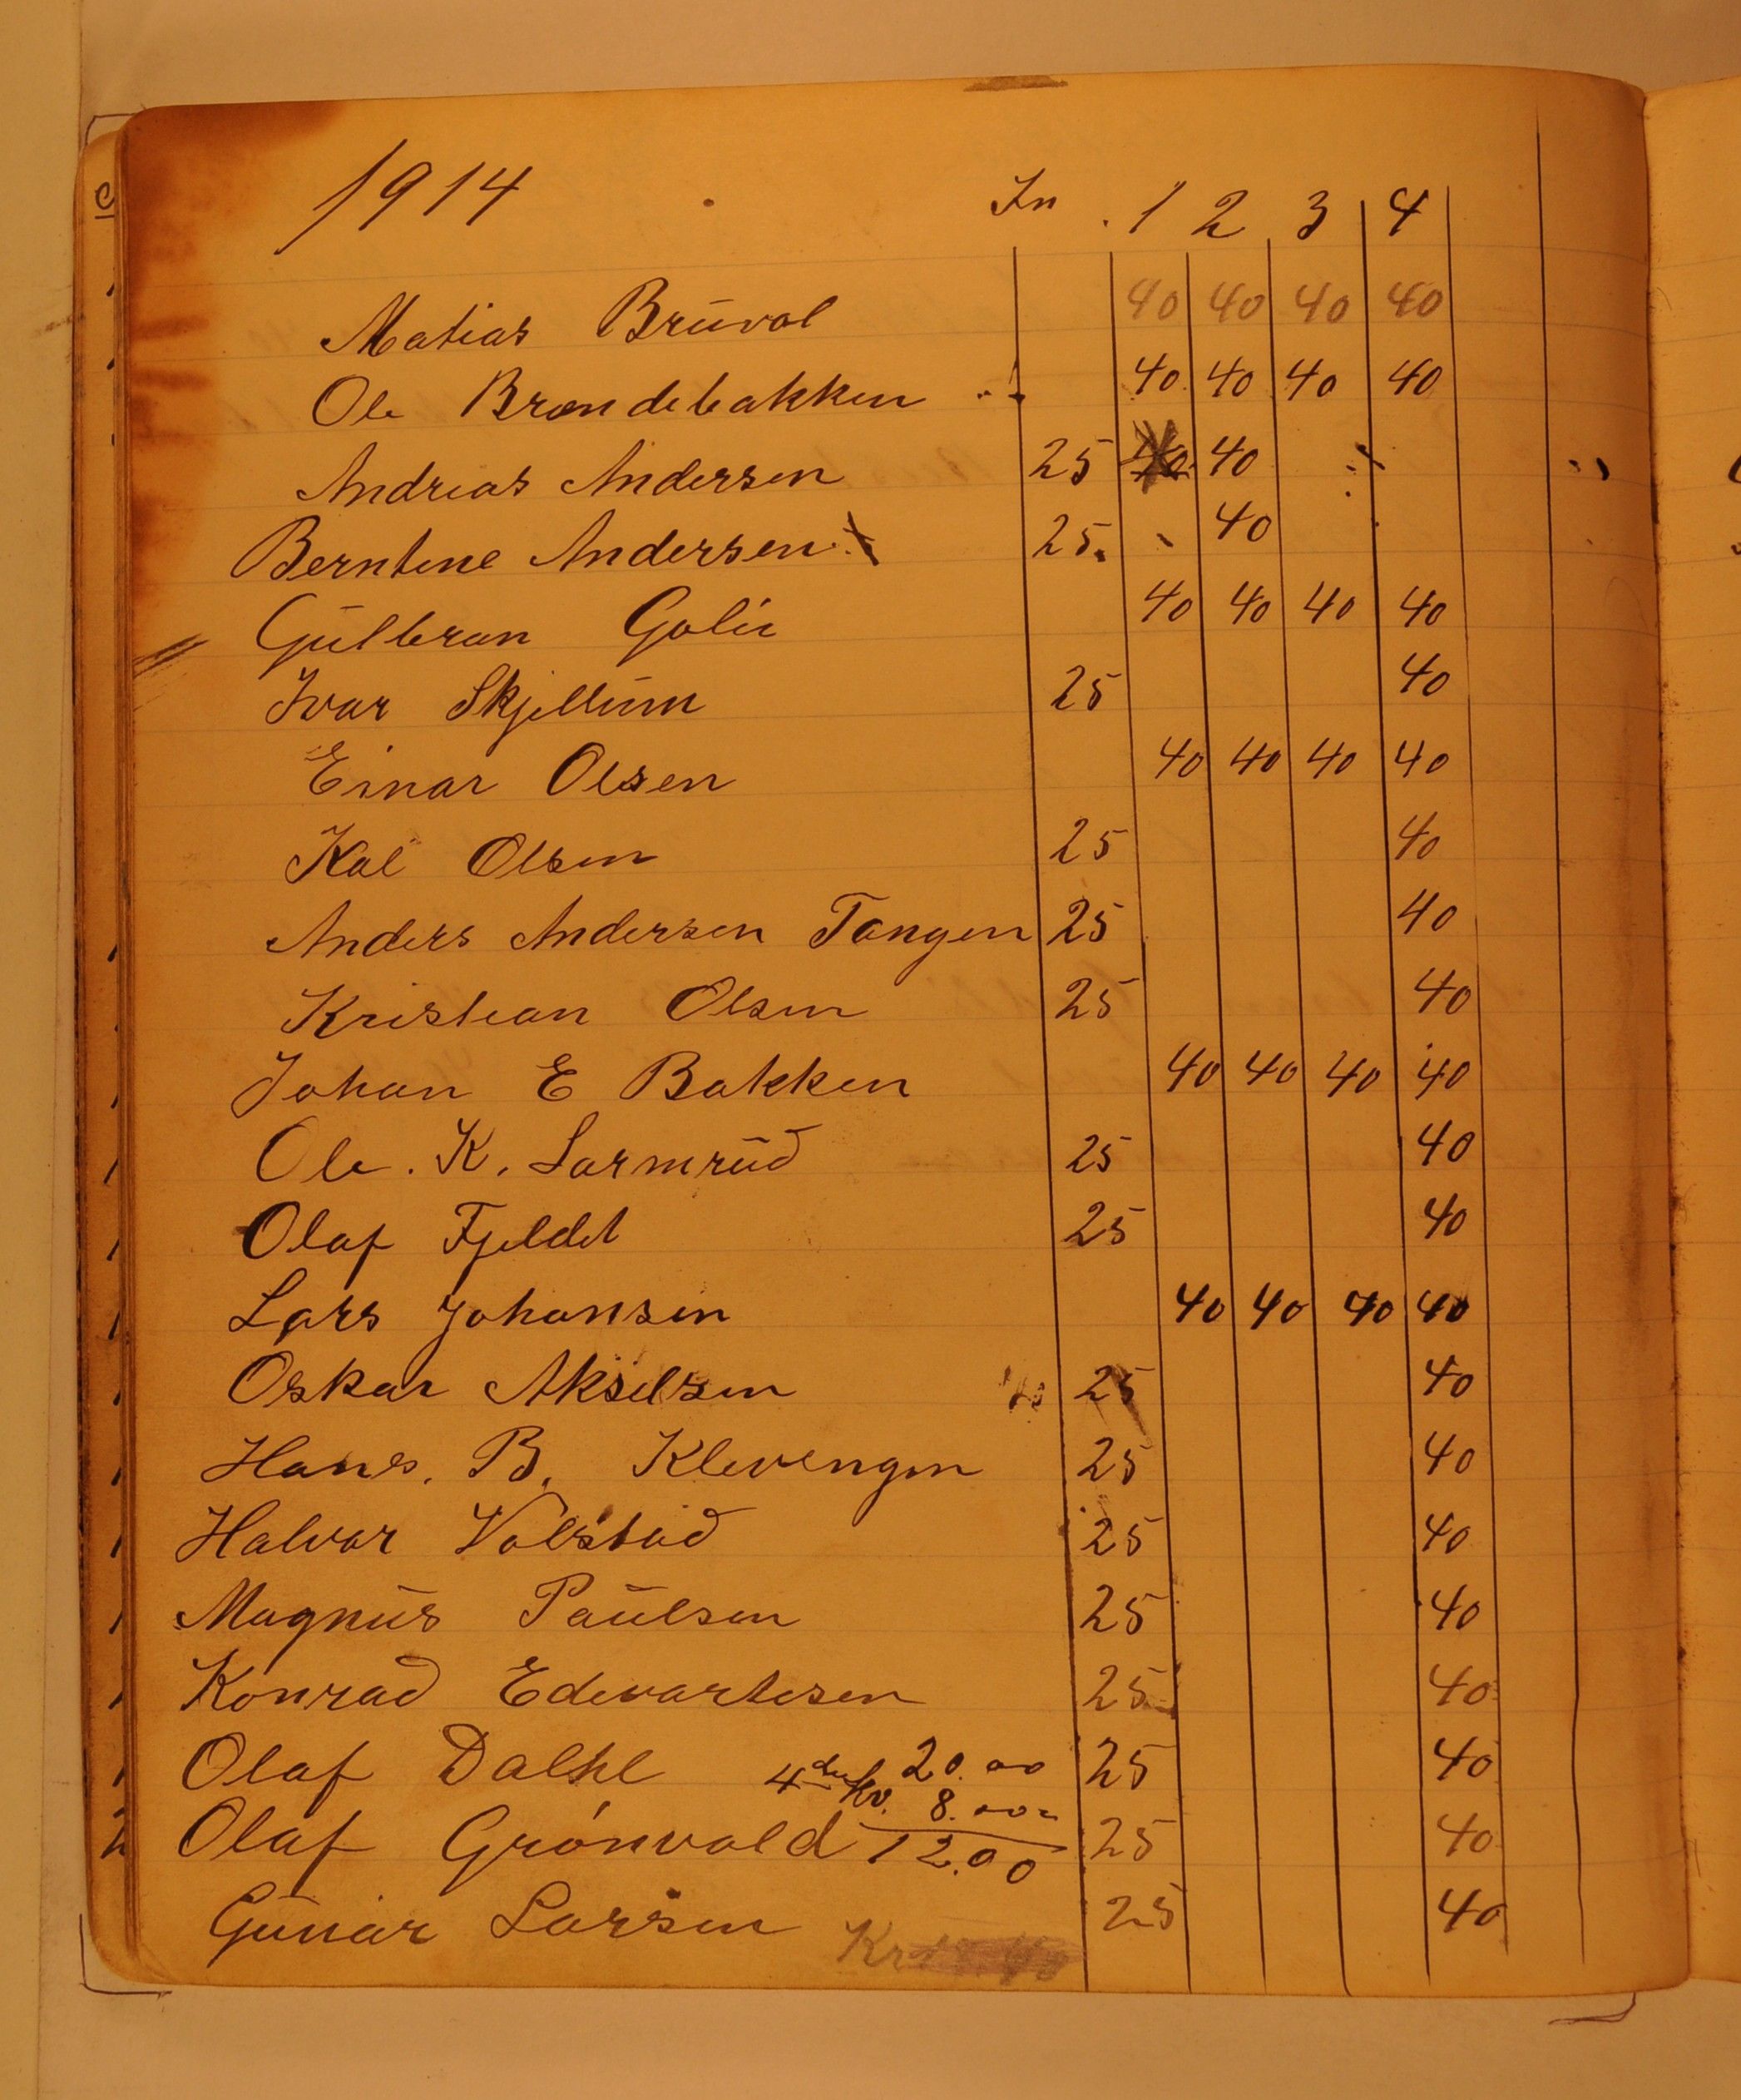 1914 In 1 2 3 4
Matias Brüvol 40 40 40 40
Ole Brændebakken 40 40 40 40
Andreas Andersen 25 40
Berntine Andersen 25 40
Gülbran Golie 40 40 40 40
Ivar Skjellüm 25 40
Einar Olsen 40 40 40 40
Kal Olsen 25 40
Anders Andersen Tangen 25 40
Kristian Olsen 25 40
Johan E Bakken 40 40 40 40
Ole. K. Larmrüd 25 40
Olaf Fjeldet 25 40
Lars Johansen 40 40 40 40
Oskar Akselsen 25 40
Hans. B. Klevengen 25 40
Halvar Volstad 25 40
Magnüs Paülsen 25 40
Konrad Edevartesen 25 40
Olaf Dalhl 20.00 25 40
4de kv. 8.00
Olaf Grónvold 12.00 25 40
Günar Larsen 25 40
Kr